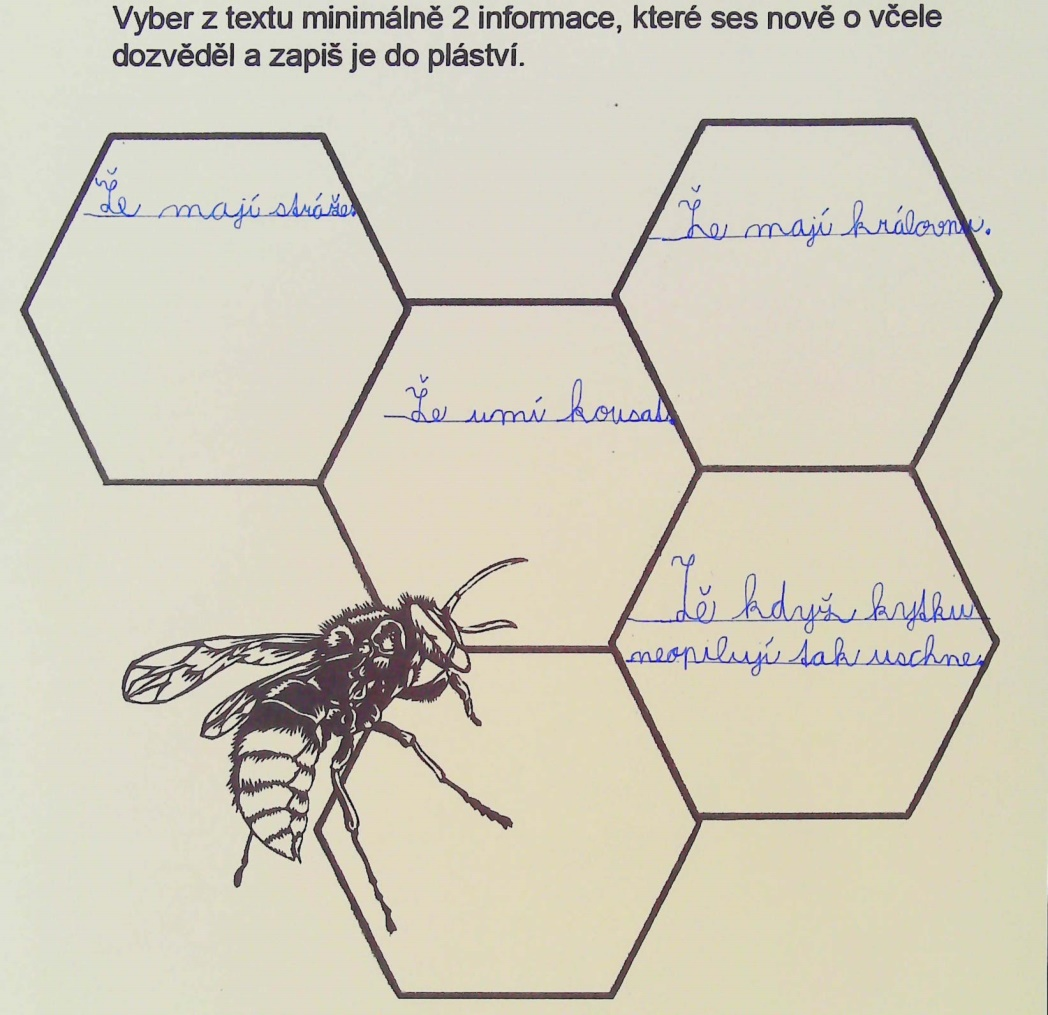 Vyber z textu minimálně 2 informace, které ses nově o včele
dozvěděl a zapiš je do pláství.
Že mají stráže.
Že mají královnu.
Že umí kousat.
Žě když kytku
neopilují tak uschne.